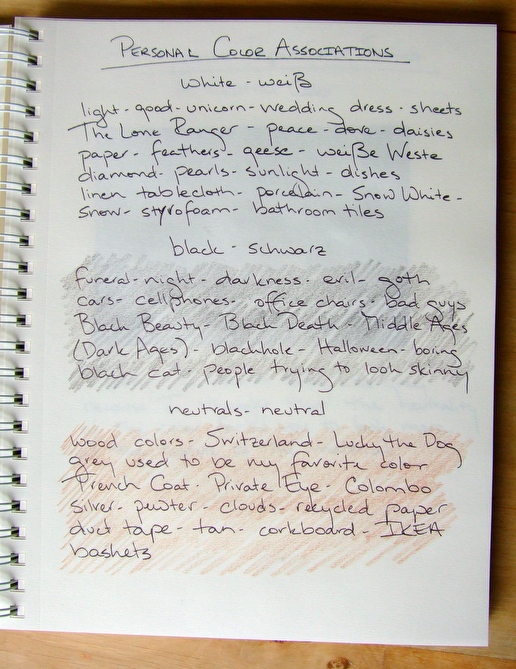 Personal Color Associations
white - weiß
light - good - unicorn - wedding dress - sheets
The Lone Ranger - peace - dove - daisies
paper - feathers - geese - weiße Weste
diamond - pearls - sunlight - dishes
linen tablecloth - porcelain - Snow White -
snow - styrofoam - bathroom tiles
black - schwarz
funeral - night - darkness - evil - goth
cars - cellphones - office chairs - bad guys
Black Beauty - Black Death - Middle Ages
(Dark Ages) - blackhole - Halloween - boring
black cat - people trying to look skinny
neutrals - neutral
wood colors - Switzerland - Lucky the Dog
grey used to be my favorite color
Trench Coat - Private Eye - Colombo
silver - pewter - clouds - recycled paper
duct tape - tan - corkboard - IKEA
baskets